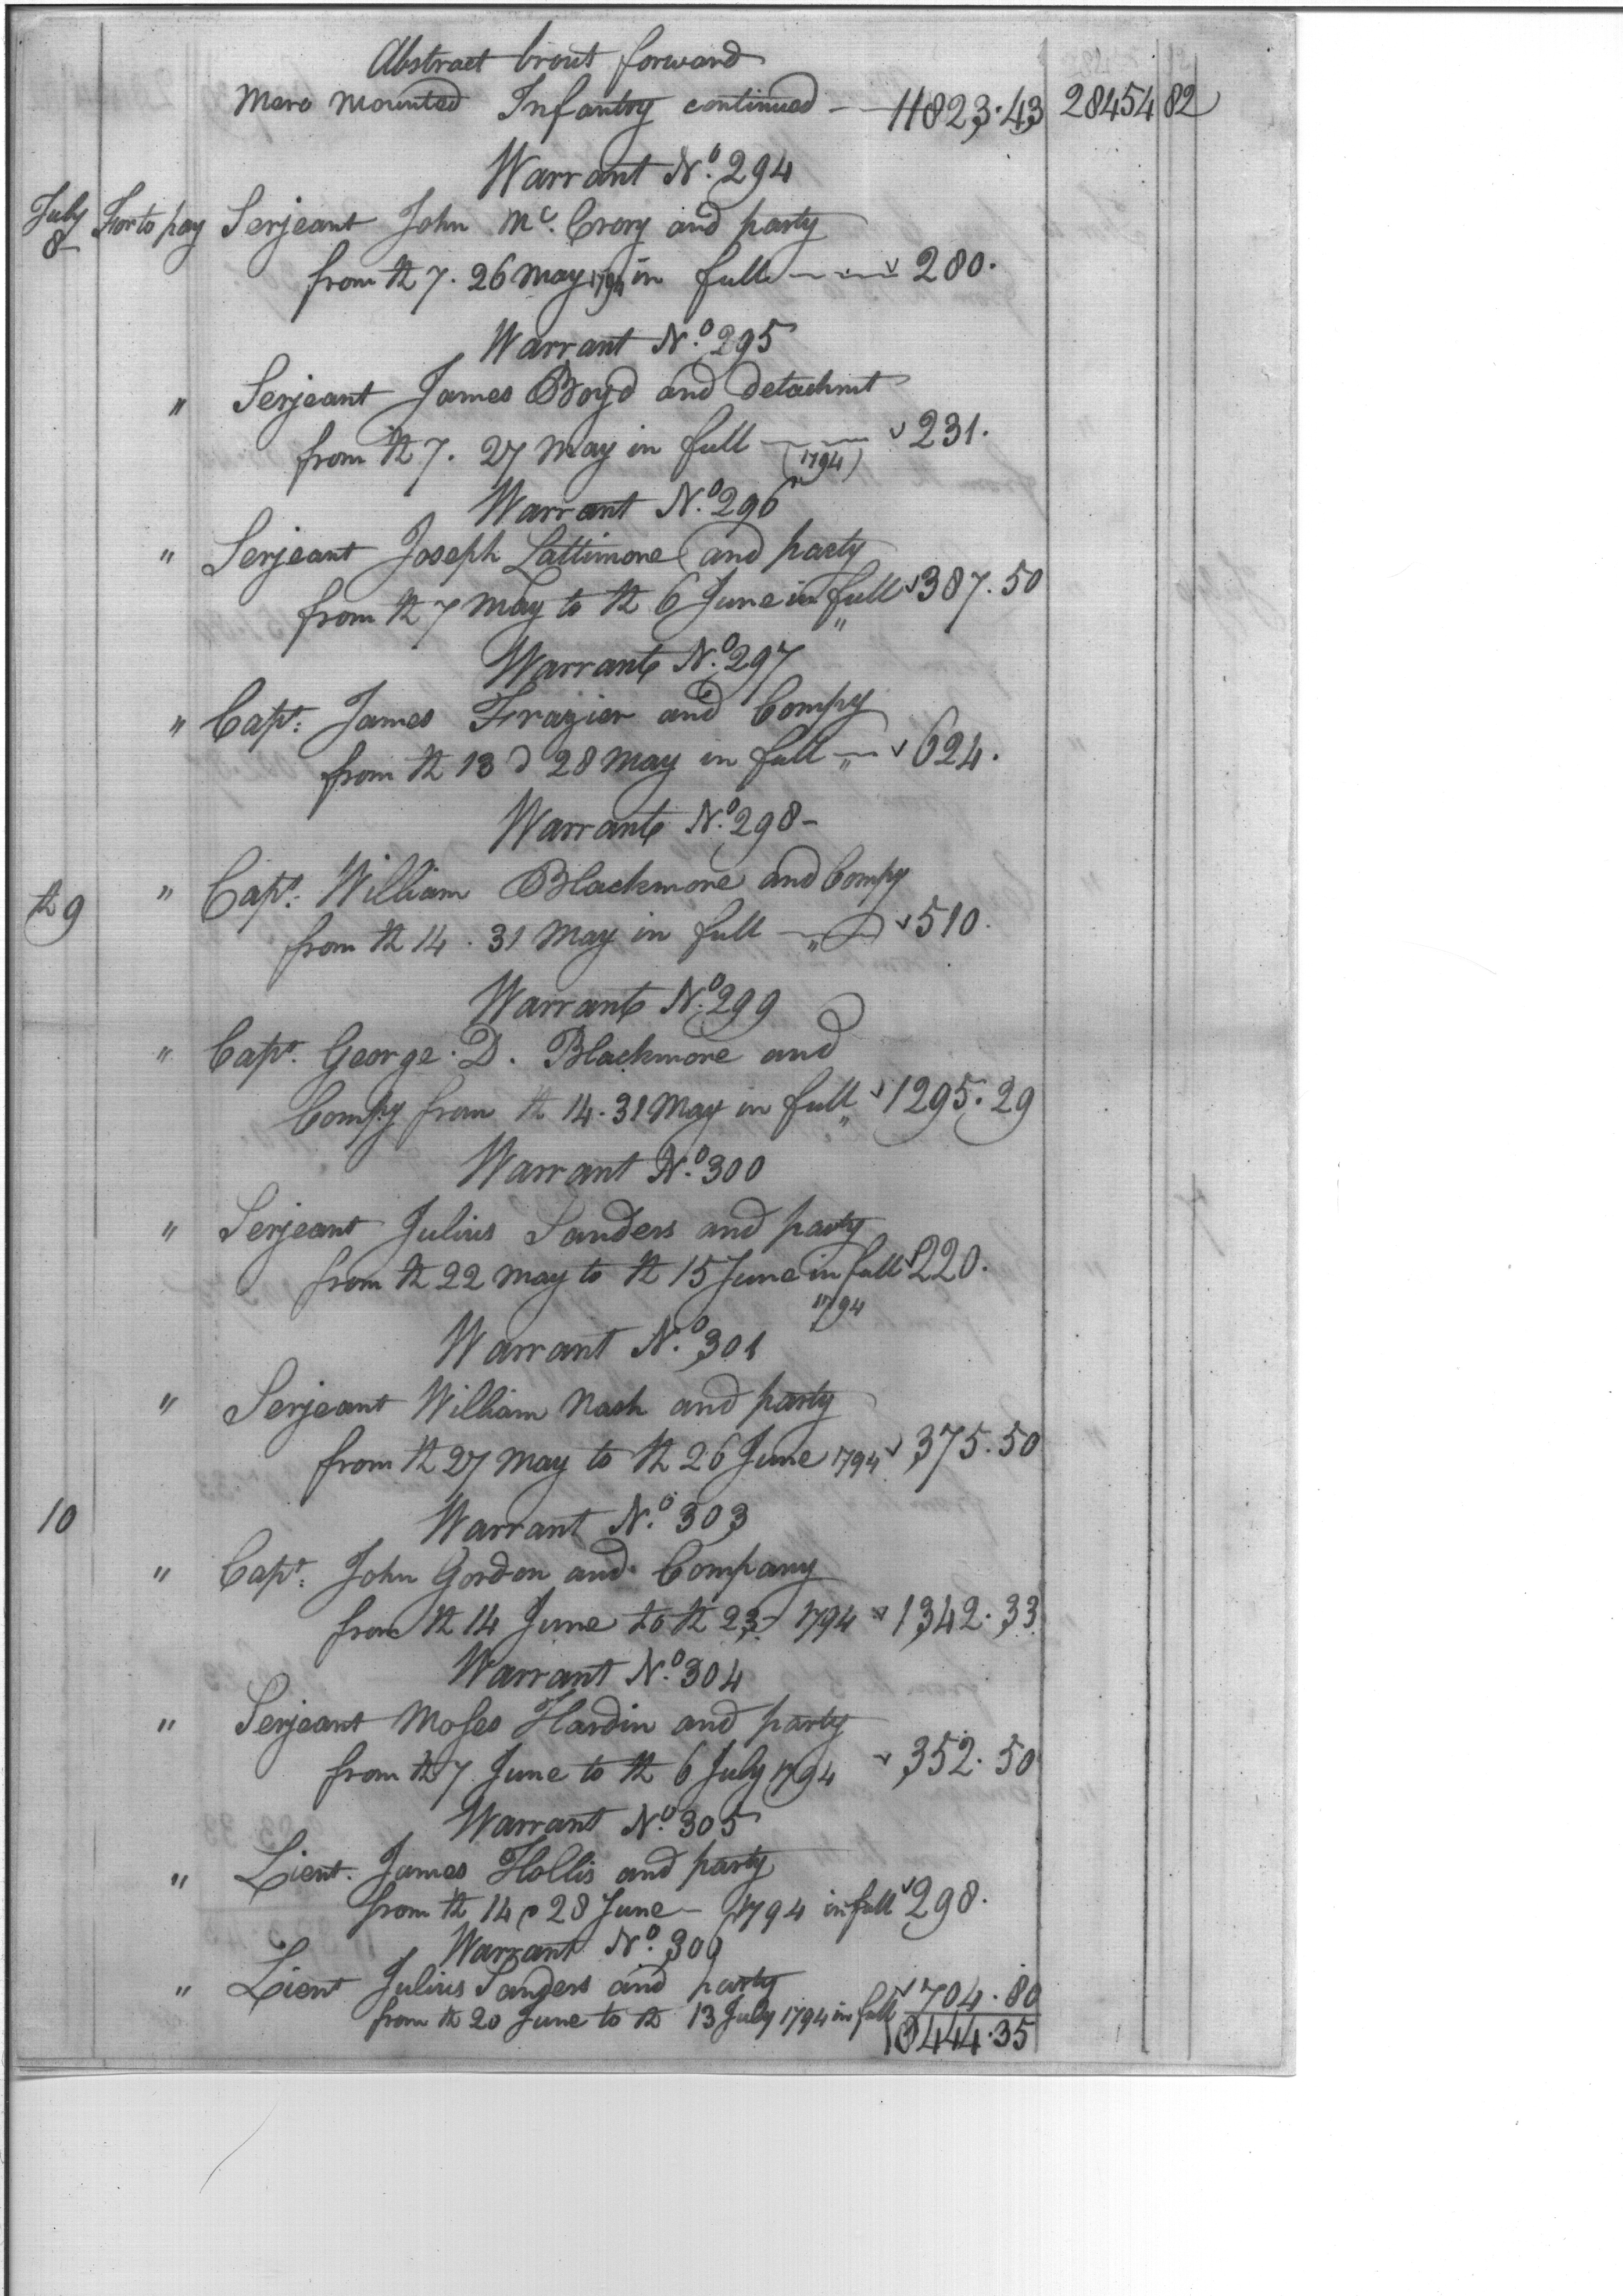 Abstract brout forward
Mero Mounted Infantry continued — 11823.43 28454 82
Warrant No. 294
July 8 For to pay Serjeant John Mc. Crory and party
from th 7. 26 May 1794 in full — 280.
Warrant No. 295
" Serjeant James Boyd and detachmt
from th 7. 27 May in full — 231.
(1794)
Warrant No. 296
" Serjeant Joseph Lattimore and party
from th 7 May to th 6 June in full 387.50
"
Warrant No. 297
" Capt. James Frazier and Compy
from th 13 d 28 May in full " 624.
Warrant No. 298 -
th 9 " Capt. William Blackmore and Compy
from th 14. 31 May in full — " 510.
Warrant No. 299
" Capt. George. D. Blackmore and
Compy from th 14. 31 May in full " 1295.29
Warrant No. 300
" Serjeant Julius Sanders and party
from th 22 May to th 15 June in full 220.
1794
Warrant No. 301
" Serjeant William Nash and party
from th 27 May to th 26 June 1794 375.50
10 Warrant No. 303
" Capt. John Gordon and Company
from th 14 June to th 23 - 1794 1342.33
Warrant No. 304
" Serjeant Moses Hardin and party
from th 7 June to th 6 July 1794 352.50
Warrant No. 305
" Lieut. James Hollis and party
from th 14 28 June - 1794 in full 298.
Warrant No.
" Lieut Julius Sanders and party
from th 20 June to th 13 July 1794 in full 704.80
444.35